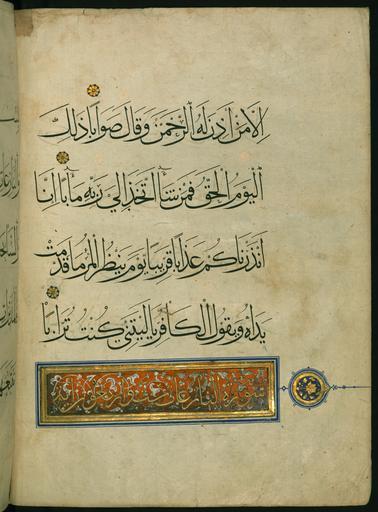 إلا من أذن له الرحمن وقال صوابا ذلك
اليوم الحق فمن شاء اتخذ إلى ربه مآبا إنا
أنذرناكم عذابا قريبا يوم ينظر المرء ما قدمت
يداه ويقول الكافر يا ليتني كنت ترابا
سورة النازعات